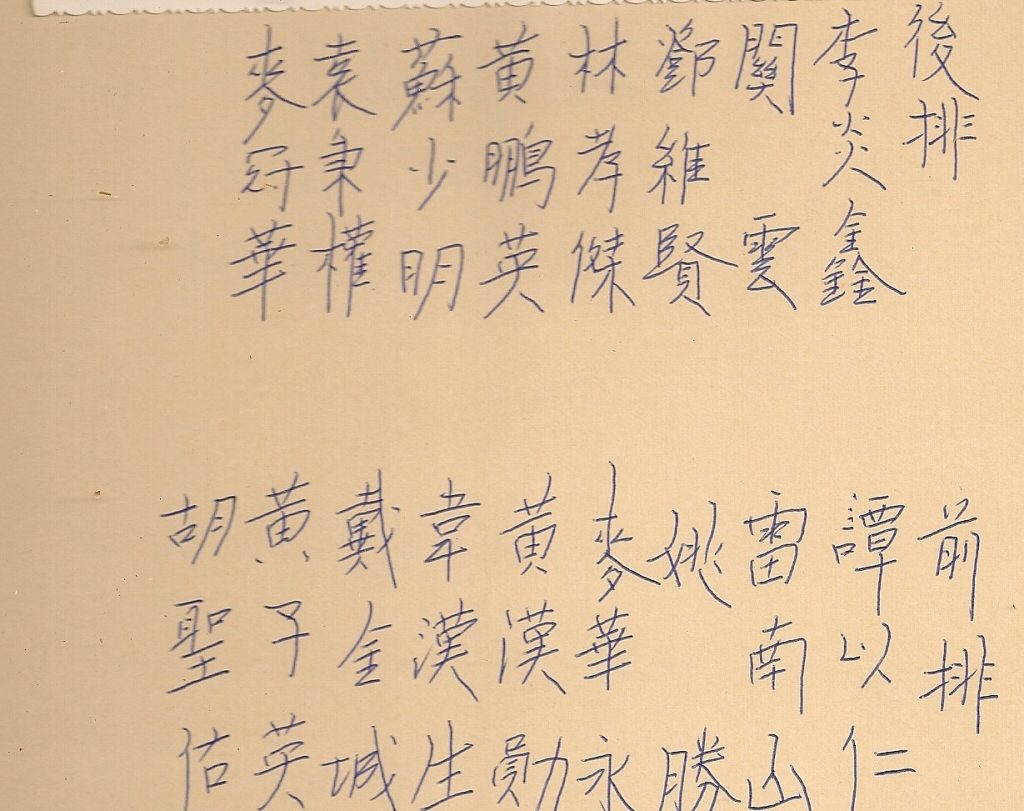 後排
李炎鑫
關雲
鄧維賢
林孝傑
黄鵬英
蘇少明
袁秉權
麥冠華
前排
譚以仁
雷南山
姚勝
麥華永
黄漢勛
韋漢生
戴金城
黄子英
胡聖佑